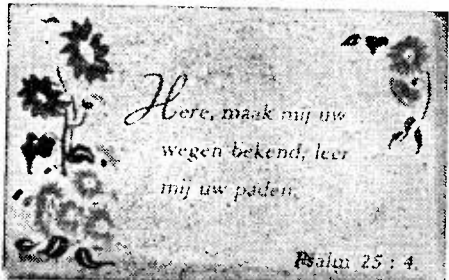 Here, maak mij uw
wegen bekend, leer
mij uw paden.
Psalm 25 : 4.